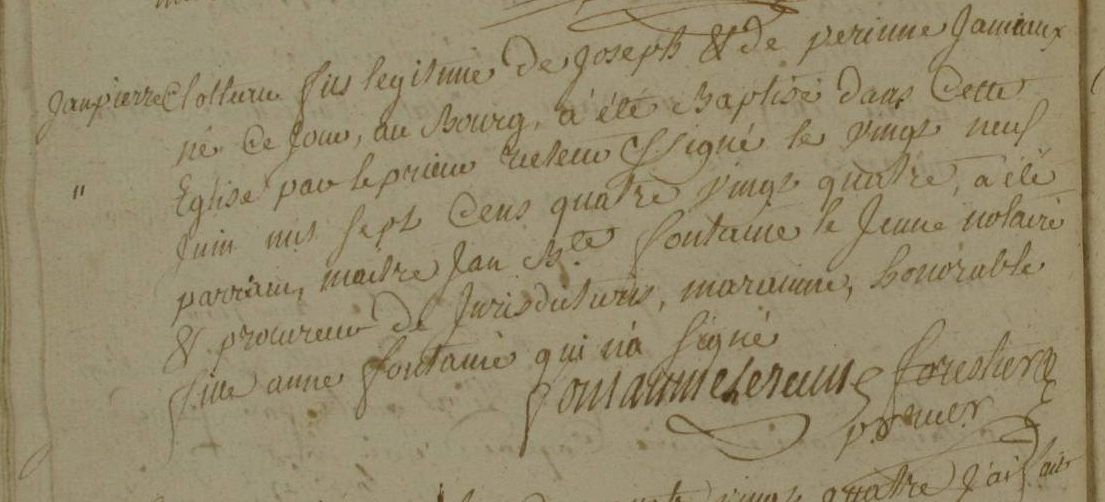 Janpierre Clotture fils legitime de Joseph & de perinne Jamiaux
né ce Jour, au Bourg, a été Baptisé dans cette
Eglise par le prieur recteur ssigné le vingt neuf
Juin mil sept cens quatre vingt quatre, a été
parrain, maitre Jan Bte fontaine le Jeune notaire
& procureur de Jurisdictions, maraine, honorable
fille anne fontaine qui n'a signé
fontaine Le jeune forestier
prieur
vingt quatre j'ai